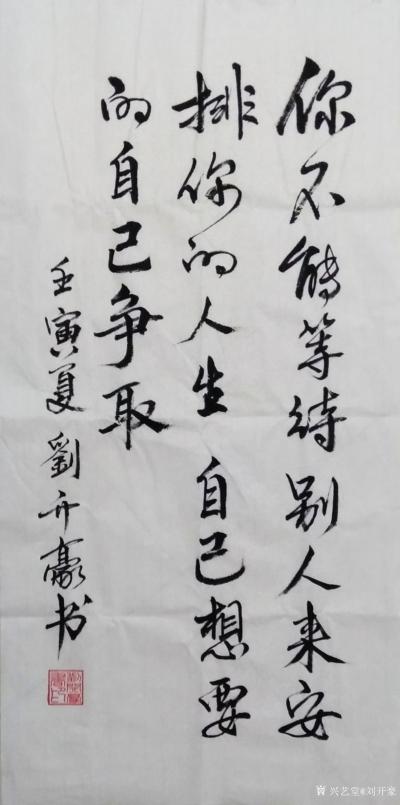 你不能等待别人来安
排你的人生自己想要
的自己争取
壬寅夏劉开豪书
兴艺堂@刘开豪